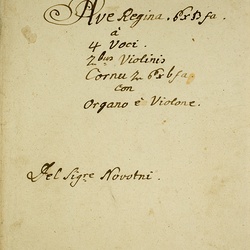 Ave Regina. 6 x b fa.
à
4 Voci.
2bus Violinis
Cornu 2. 6 x b fa
con
Organo è Violone.
Del Sigre Novotni.